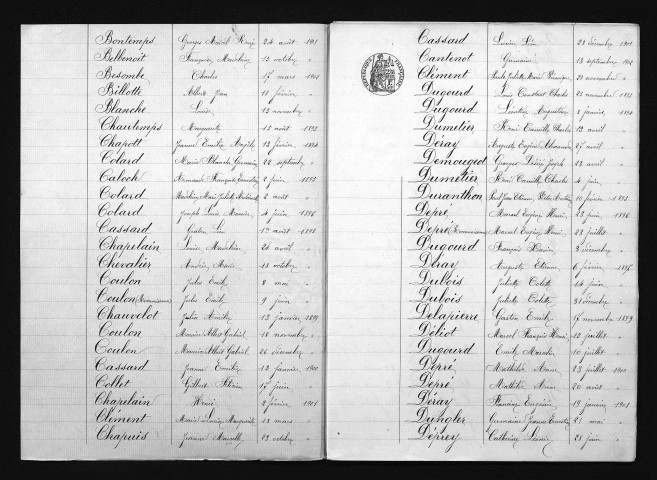 Bontemps Georges Marcel René 24 août 1901
Bellenoit Françoise Madeleine 13 octobre "
Besombe Charles 17 mars 1902
Billotte Albert Jean 18 février "
Blanche Louise 13 novembre "
Chautemps Marguerite 15 août 1893
Chapott Jeanne Emilie 13 février 1894
Colard Marie Blanche Germaine 22 septembre "
Caloch Armande Françoise 2 juin 1895
Colard Marie Juliette 2 août "
Colard Joseph Louis Maurice 4 juin 1896
Cassard Gaston Léon 1er août 1898
Chapelain Louise Madeleine 24 avril "
Chevalier Marie 13 octobre "
Coulon Jules Emile 8 mai "
Coulon (Reconnaissance) Jules Emile 9 juin "
Chauvelot Julia 13 janvier 1899
Coulon Maurice Albert Gabriel 18 novembre "
Coulon Maurice Albert Gabriel 26 décembre "
Cassard Jeanne Emilie 13 janvier 1900
Collet Gilbert 17 juin "
Chapelain Henri 2 février 1901
Clément Marie Louise Marguerite 12 mars "
Chapuis Jeanne Marcelle 13 octobre "
Cassard Lucien Léon 23 décembre 1901
Cantenot Germaine 13 septembre 1902
Clément Paule Juliette Marie 20 novembre "
Dugourd Louis Constant Charles 25 novembre 1893
Dugourd Léontine Augustine 2 janvier 1894
Dumetier Henri Camille Charles 12 avril "
Déray Auguste Eugène 27 avril "
Demougeot Georges Désiré Joseph 23 avril "
Dumétier Henri Camille Charles 4 juin "
Duranthon Paul Jean Etienne 10 février 1895
Depré Marcel Eugène Henri 23 juin 1896
Depré (Reconnaissance) Marcel Eugène Henri 23 juillet "
Dugourd François 3 décembre "
Déray Auguste Etienne 6 février 1897
Dubois Juliette Colette 14 juin "
Dubois Juliette Colette 31 décembre "
Delapierre Gaston Emile 17 novembre 1899
Déliot Marcel François Henri 12 juillet "
Dugourd Emile 10 juillet "
Dépré Mathilde 23 juillet 1900
Dépré Mathilde 20 août "
Déray Eugénie 19 janvier 1901
Dungler Germaine Jeanne 21 mai "
Déprey Catherine Léonie 25 juin "